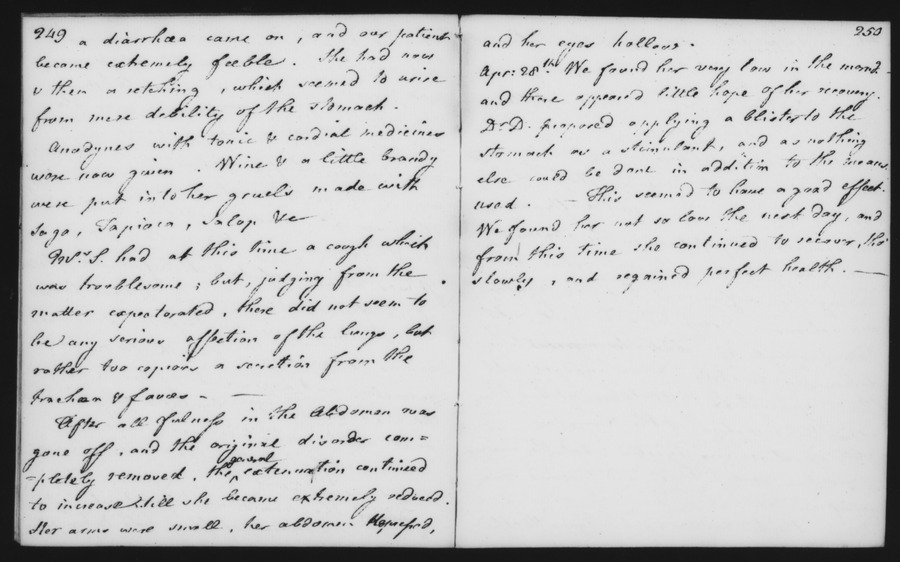 249
a diarrhœa came on, and our patient
became extremely feeble. She had now
& then a retching, which seemed to arise
from mere debility of the stomach.
Anodynes with tonic & cordial medicines
were now given. Wine & a little brandy
were put into her gruels made with
Sago, Tapioca, Salop &c
Mrs. S. had at this time a cough which
was troublesome; but, judging from the
matter expectorated, there did not seem to
be any serious affection of the lungs, but
rather too copious a secretion from the
trachæa & fauces. —
After all fulness in the Abdomen was
gone off, and the original disorder com=
=pletely removed, the general extenuation continued
to increase till she became extremely reduced.
Her arms were small, her abdomen
250
and her eyes hollow.
Apr: 28th We found her very low in the
and there appeared little hope of her recovery.
Dr. D. proposed applying a blister to the
stomach as a stimulant, and as nothing
else could be done in addition to the means
used. — This seemed to have a good effect.
We found her not so low the next day, and
from this time she continued to recover, tho'
slowly, and regained perfect health. —